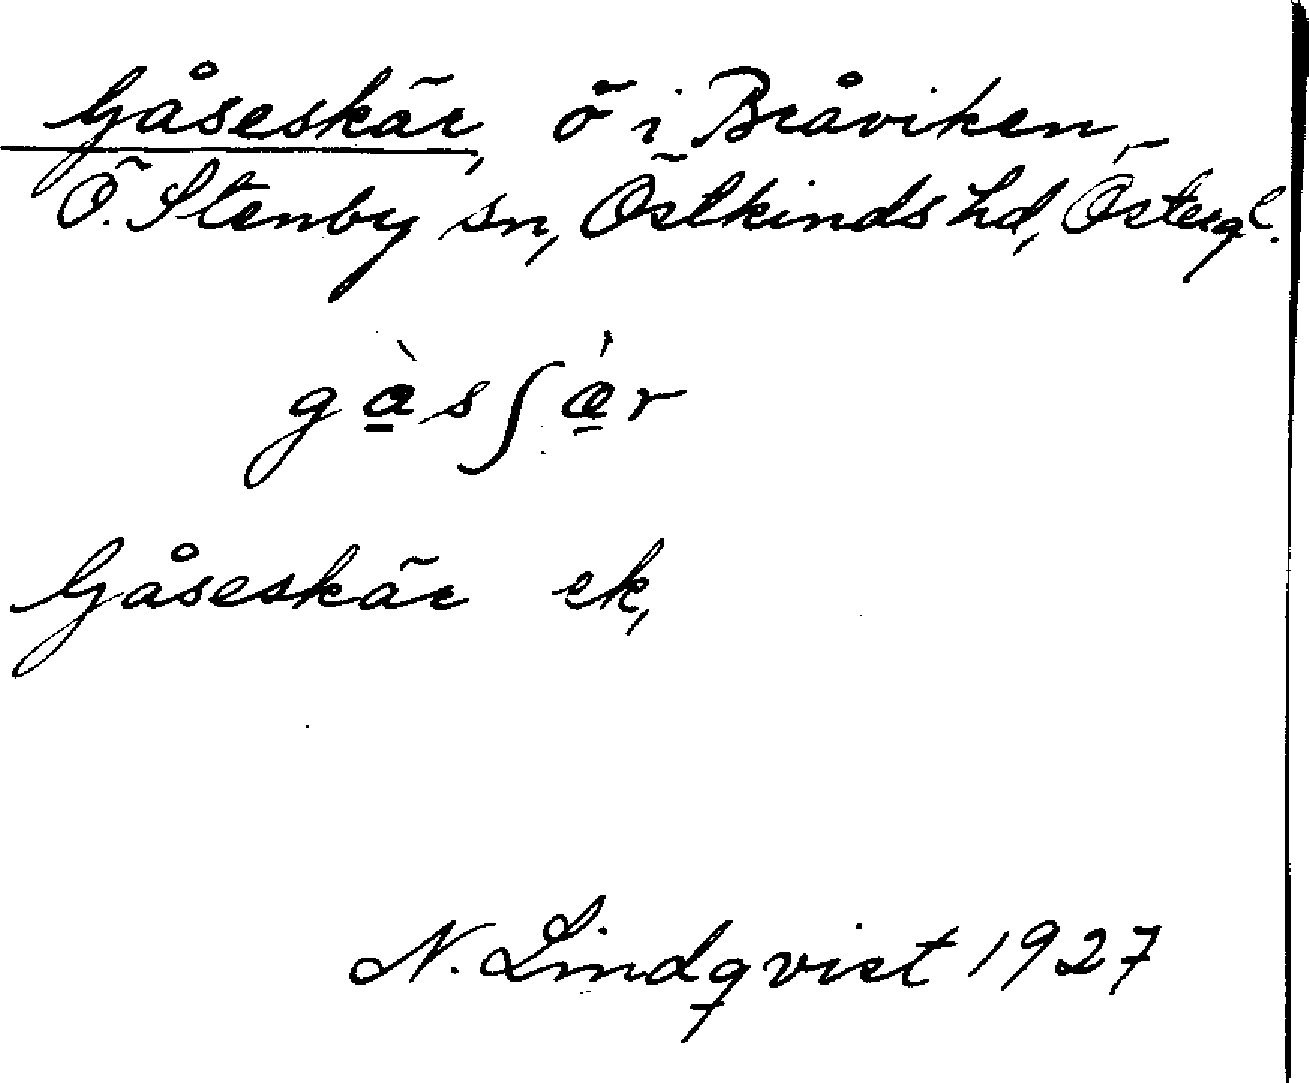 Gåseskär, ö i Bråviken
Ö. Stenby sn, Östkinds hd, Östergl.
gàsʃǽr
Gåseskär ek,
N. Lindqvist 1927